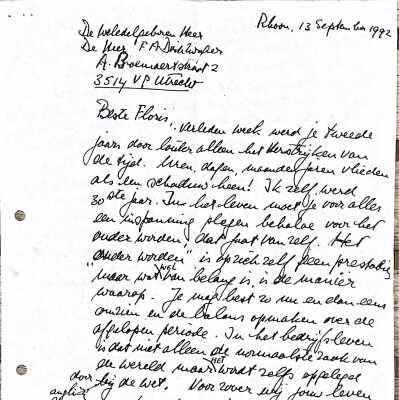 Rhoon, 13 September 1992
De Weledelgeboren Heer
De Heer F A
A. Bloemaertstraat 2
3514 VP Utrecht
Beste Floris,
Verleden week werd je tweede
jaars door louter alleen het verstrijken van
de tijd. Uren, dagen, maanden, jaren vlieden
als een schaduw heen! Ik zelf werd
30ste jaar. In het leven moet je voor alles
een inspanning plegen behalve voor het
ouder worden; dat gaat vanzelf. Het
"ouder worden" is op zich zelf geen prestatie,
maar wat wel van belang is, is de manier
waarop. Je mag best zo nu en dan eens
omzien en de balans opmaken over de
afgelopen periode. In het bedrijfsleven
is dat niet alleen de normaalste zaak van
de wereld maar het wordt zelfs opgelegd
door bij de wet. Voor zover wij jouw leven